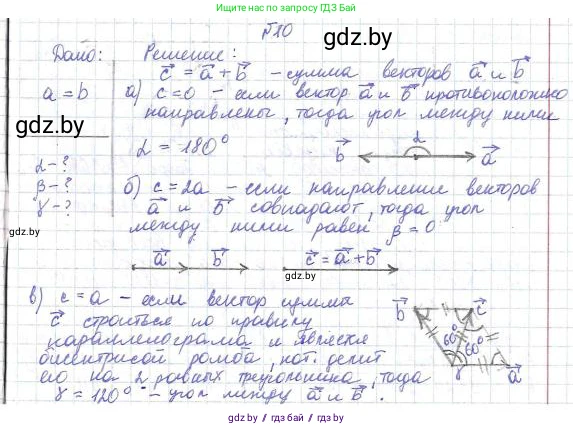 Локальный запрос по запросу ГДЗ БАЙ
№10
gdz.by
Дано: Решение:
c = a + b - сумма векторов a и b
a = b а) c=0 - если вектор a и b противоположно
направлены, тогда угол между ними
gdz.by
α = 180° b α a
α-?
β-?
γ-?
б) c=2a - если направление векторов
a и b совпадают, тогда угол
между ними равен β=0
gdz.by
a b c = a + b
в) c=a - если вектор сумма
c строиться по правилу
параллелограма и является
биссектрисой ромба, кот. делит
его на 2 равных треугольника, тогда
γ = 120° - угол между a и b.
b c 60° 60° γ a
gdz.by / gdz.by / gdz.by